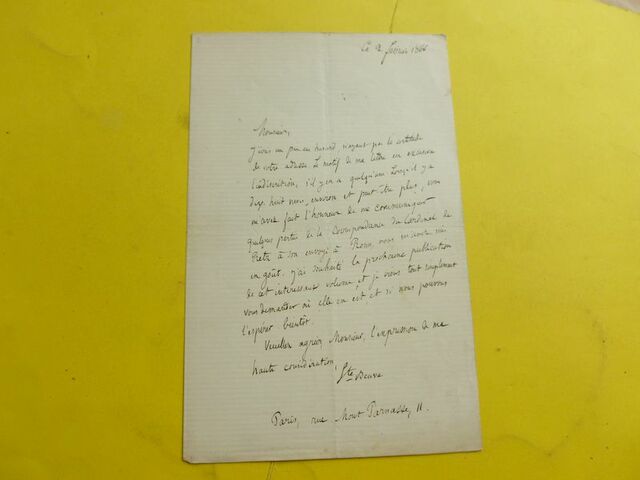 Ce 2 février 1866
Monsieur,
J'écris un peu au hasard, n'ayant pas la certitude
de votre adresse. Le motif de ma lettre en excusera
l'indiscrétion, s'il y en a quelqu'une. Lorsqu'il y a
dix huit mois, environ et peut être plus, vous
m'avez fait l'honneur de me communiquer
quelque partie de la Correspondance du Cardinal de
Retz à son envoyé à Rome, vous m'avez mis
en goût. J'ai souhaité la prochaine publication
de cet intéressant volume, et je viens tout simplement
vous demander où elle en est, et si nous pouvons
l'espérer bientôt.
Veuillez agréer, Monsieur, l'expression de ma
haute considération,
Ste Beuve
Paris, rue Mont Parnasse, 11.